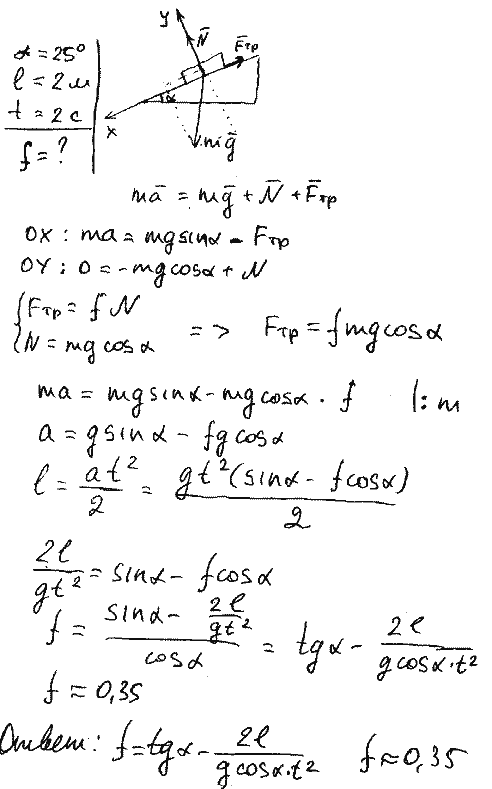 α = 25°
l = 2 м
t = 2 с
f = ?
y
N̄
F̄тр
α
x
mḡ
mā = mḡ + N̄ + F̄тр
OX : ma = mg sinα - Fтр
OY : 0 = -mg cosα + N
{Fтр = fN
{N = mg cosα
=> Fтр = fmg cosα
ma = mg sinα - mg cosα · f |: m
a = g sinα - fg cosα
l = at²/2 = gt²(sinα - f cosα)/2
2l/gt² = sinα - f cosα
f = (sinα - 2l/gt²)/cosα = tgα - 2l/(g cosα·t²)
f ≈ 0,35
Ответ: f = tgα - 2l/(g cosα·t²) f ≈ 0,35